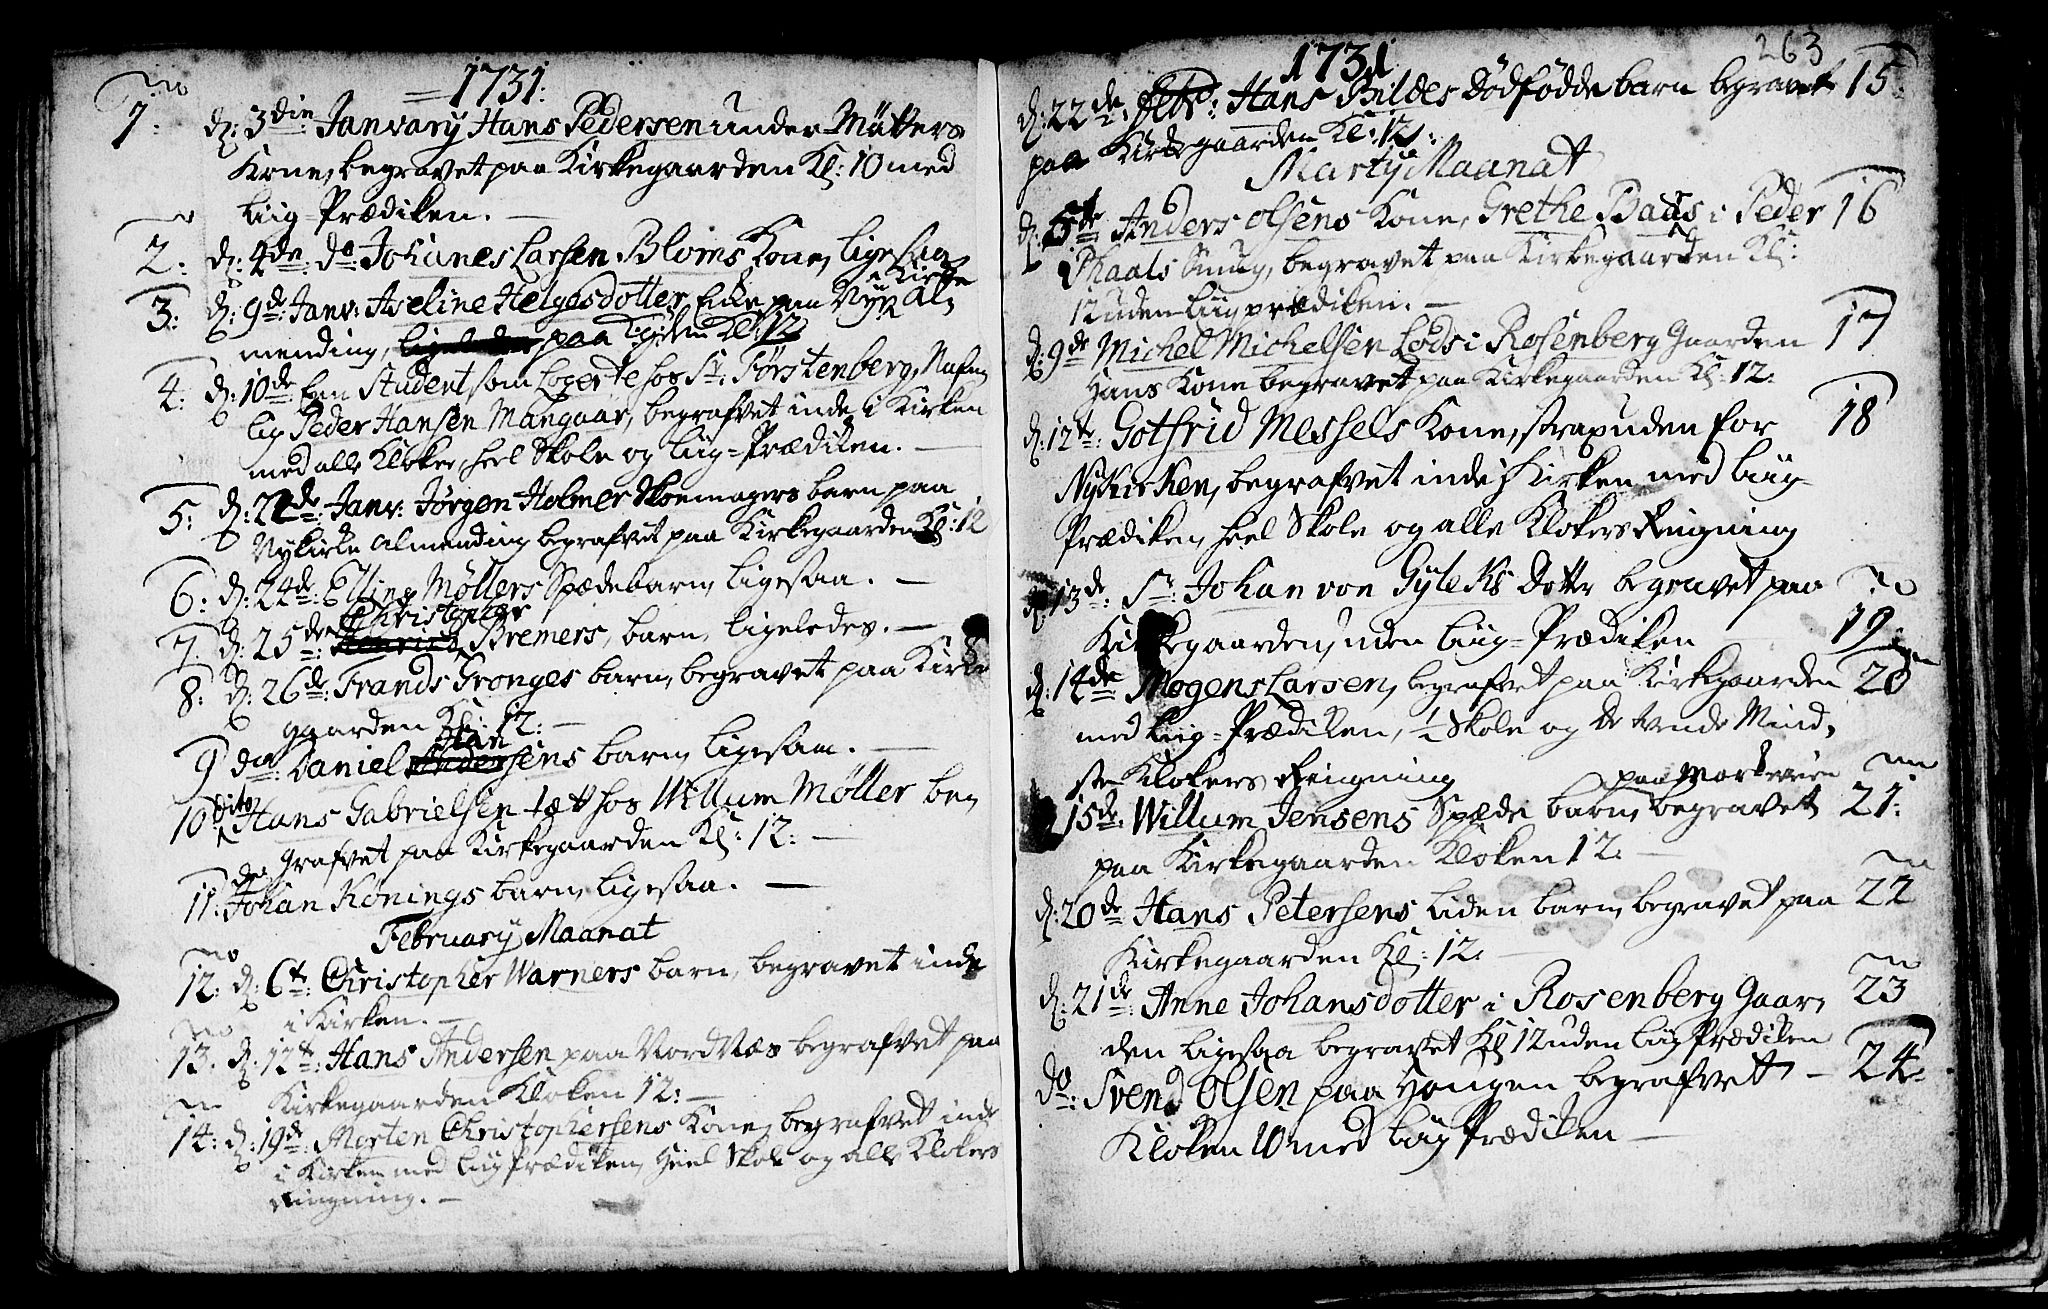 1731:
No
1: d: 3die: Janvary Hans Pedersen under Müüren
Kone, begravet paa Kirkegaarden Kl: 10 med
Liig-Prædiken. —
2: d: 4de: do: Johanes Larsen Bloms Kone, ligesaa
3: d: 9de: Janv: Aseline Helgesdotter, Enke paa Nye Kirke Al,
mending, paa Kl: 12
4: d: 10de: Een Student som Logerte hos Sr: Förstenberg, Nafn,
lig Peder Hansen Mangaar, begrafvet inde i Kirken
med alle Kloker, heel Skole og Liig-Prædiken. —
5: d: 22de: Janv: Jörgen Holmer Skoemagers barn paa
Nykirke Almending begrafvet paa Kirkegaarden Kl: 12
6: d: 24de: Elling Möllers Spædebarn, ligesaa. —
Christopher
7. d: 25de: Henrich Bremers, barn, ligeledes. —
8: d: 26de: Frands Gronges barn, begravet paa Kirke
gaarden Kl: 12: —
9 do: Daniel Andersens barn, ligesaa. —
10 dito Hans Gabrielsen tæt hos Willum Möller be,
grafvet paa Kirkegaarden Kl: 12: —
do
11: Johan Konings barn, ligesaa. —
February Maanat
No
12: d: 6te: Christopher Warners barn, begravet inde
i Kirken. —
No
13. d: 12te: Hans Andersen paa Nordnæs begrafvet paa
Kirkegaarden Kloken 12: —
14: d: 19de: Morten Christophersens Kone, begrafvet inde
i Kirken med Liig Prædiken, Heel Skole og alle Klokers
Ringning. —
263
1731
d: 22de: Febr: Hans Bildes Dödfödde barn begravet 15.
paa Kirkegaarden Kl: 12:
Marty Maanat
d: 5te: Anders Olsens Kone, Grethe Baads i Peder 16
Thaals Smug, begravet paa Kirkegaarden Kl:
12 uden Liig prædiken. —
d: 9de Michel Michelsen Lods i Rosenberg Gaarden 17
Hans Kone begravet paa Kirkegaarden Kl: 12:
d: 12te: Gotfrid Messels Kone, strax uden for 18
Nykirken, begrafvet inde i Kirken med Liig-
Prædiken, heel Skole og alle Klokers Ringning
d: 13de: Sr: Johan von Gyleks Dotter begravet paa No
Kirkegaarden, uden Liig-Prædiken 19.
d: 14de Mogens Larsen, begrafvet paa Kirkegaarden 20
med Liig-Prædiken, ½ Skole og de tvende Mind,
ste Klokers Ringning
paa Markeveien
15de: Willum Jensens Spæde barn, begravet 21:
paa Kirkegaarden Kloken 12. —
d: 20de Hans Petersens liden barn, begravet paa 22
Kirkegaarden Kl: 12. —
d: 21de: Anne Johansdotter i Rosenberg Gaar, 23
den ligesaa begravet Kl 12 uden Liig Prædiken
do: Svend Olsen paa Hougen begrafvet — 24.
Kloken 10 med Liig Prædiken —